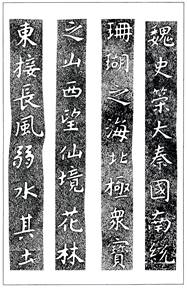 魏史策大秦國南統
珊瑚之海北極衆寶
之山西望仙境花林
東接長風弱水其土